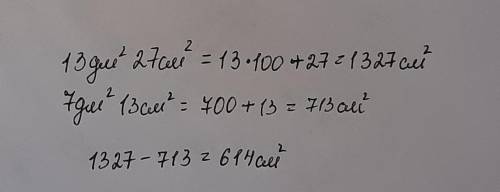 13дм² 27см² = 13·100+27=1327см²
7дм² 13см² = 700+13 = 713см²
1327-713=614см²